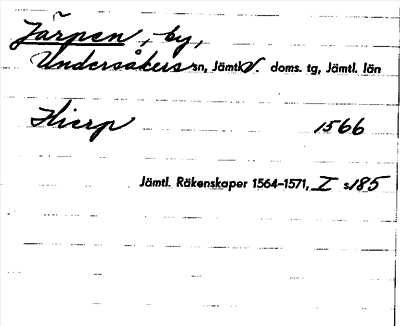 Järpen, by,
Undersåkers sn, Jämtl. V. doms. tg, Jämtl. län
Hierp 1566
Jämtl. Räkenskaper 1564-1571, I s 185